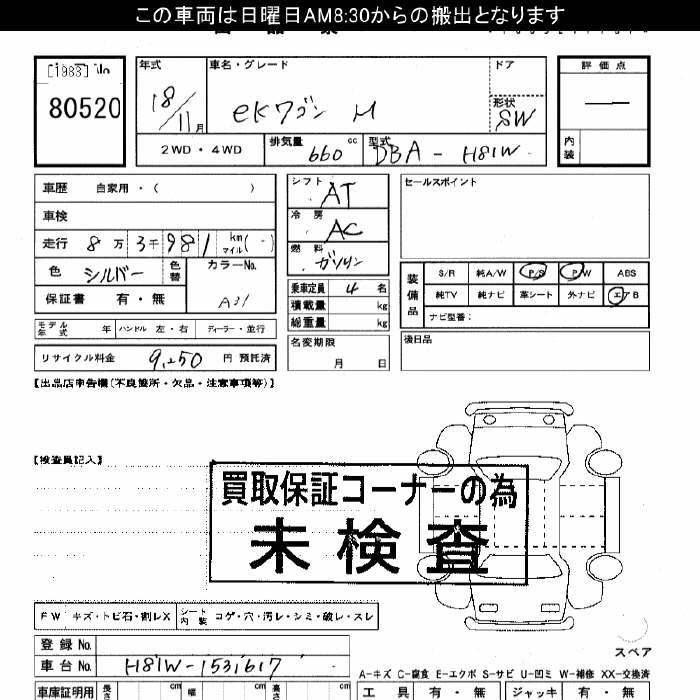 この車両は日曜日AM8:30からの搬出となります
[1983] No
80520
年式
18/11月
車名・グレード
ekワゴン M
ドア
形状
SW
評価点
内装
2WD・4WD
排気量
660cc
型式
DBA - H81W
車歴 自家用・( )
車検
走行 8万3千981 km マイル(-)
色 シルバー
色替
カラーNo.
A31
保証書 有・無
シフト AT
冷房 AC
燃料 ガソリン
乗車定員 4名
積載量 kg
総重量 kg
セールスポイント
装備品
S/R 純A/W P/S P/W ABS
純TV 純ナビ 革シート 外ナビ エアB
ナビ型番:
モデル年式 年 ハンドル 左・右 ディーラー・並行
リサイクル料金 9,250 円 預託済
名変期限
月 日
後日品
【出品店申告欄(不良箇所・欠品・注意事項等)】
【検査員記入】
買取保証コーナーの為
未検査
FW キズ・トビ石・割レX
シート内装 コゲ・穴・汚レ・シミ・破レ・スレ
登録No.
車台No. H81W-1531617
スペア
A-キズ C-腐食 E-エクボ S-サビ U-凹ミ W-補修 XX-交換済
車庫証明用 長さ cm 幅 cm 高さ cm
工具 有・無 ジャッキ 有・無